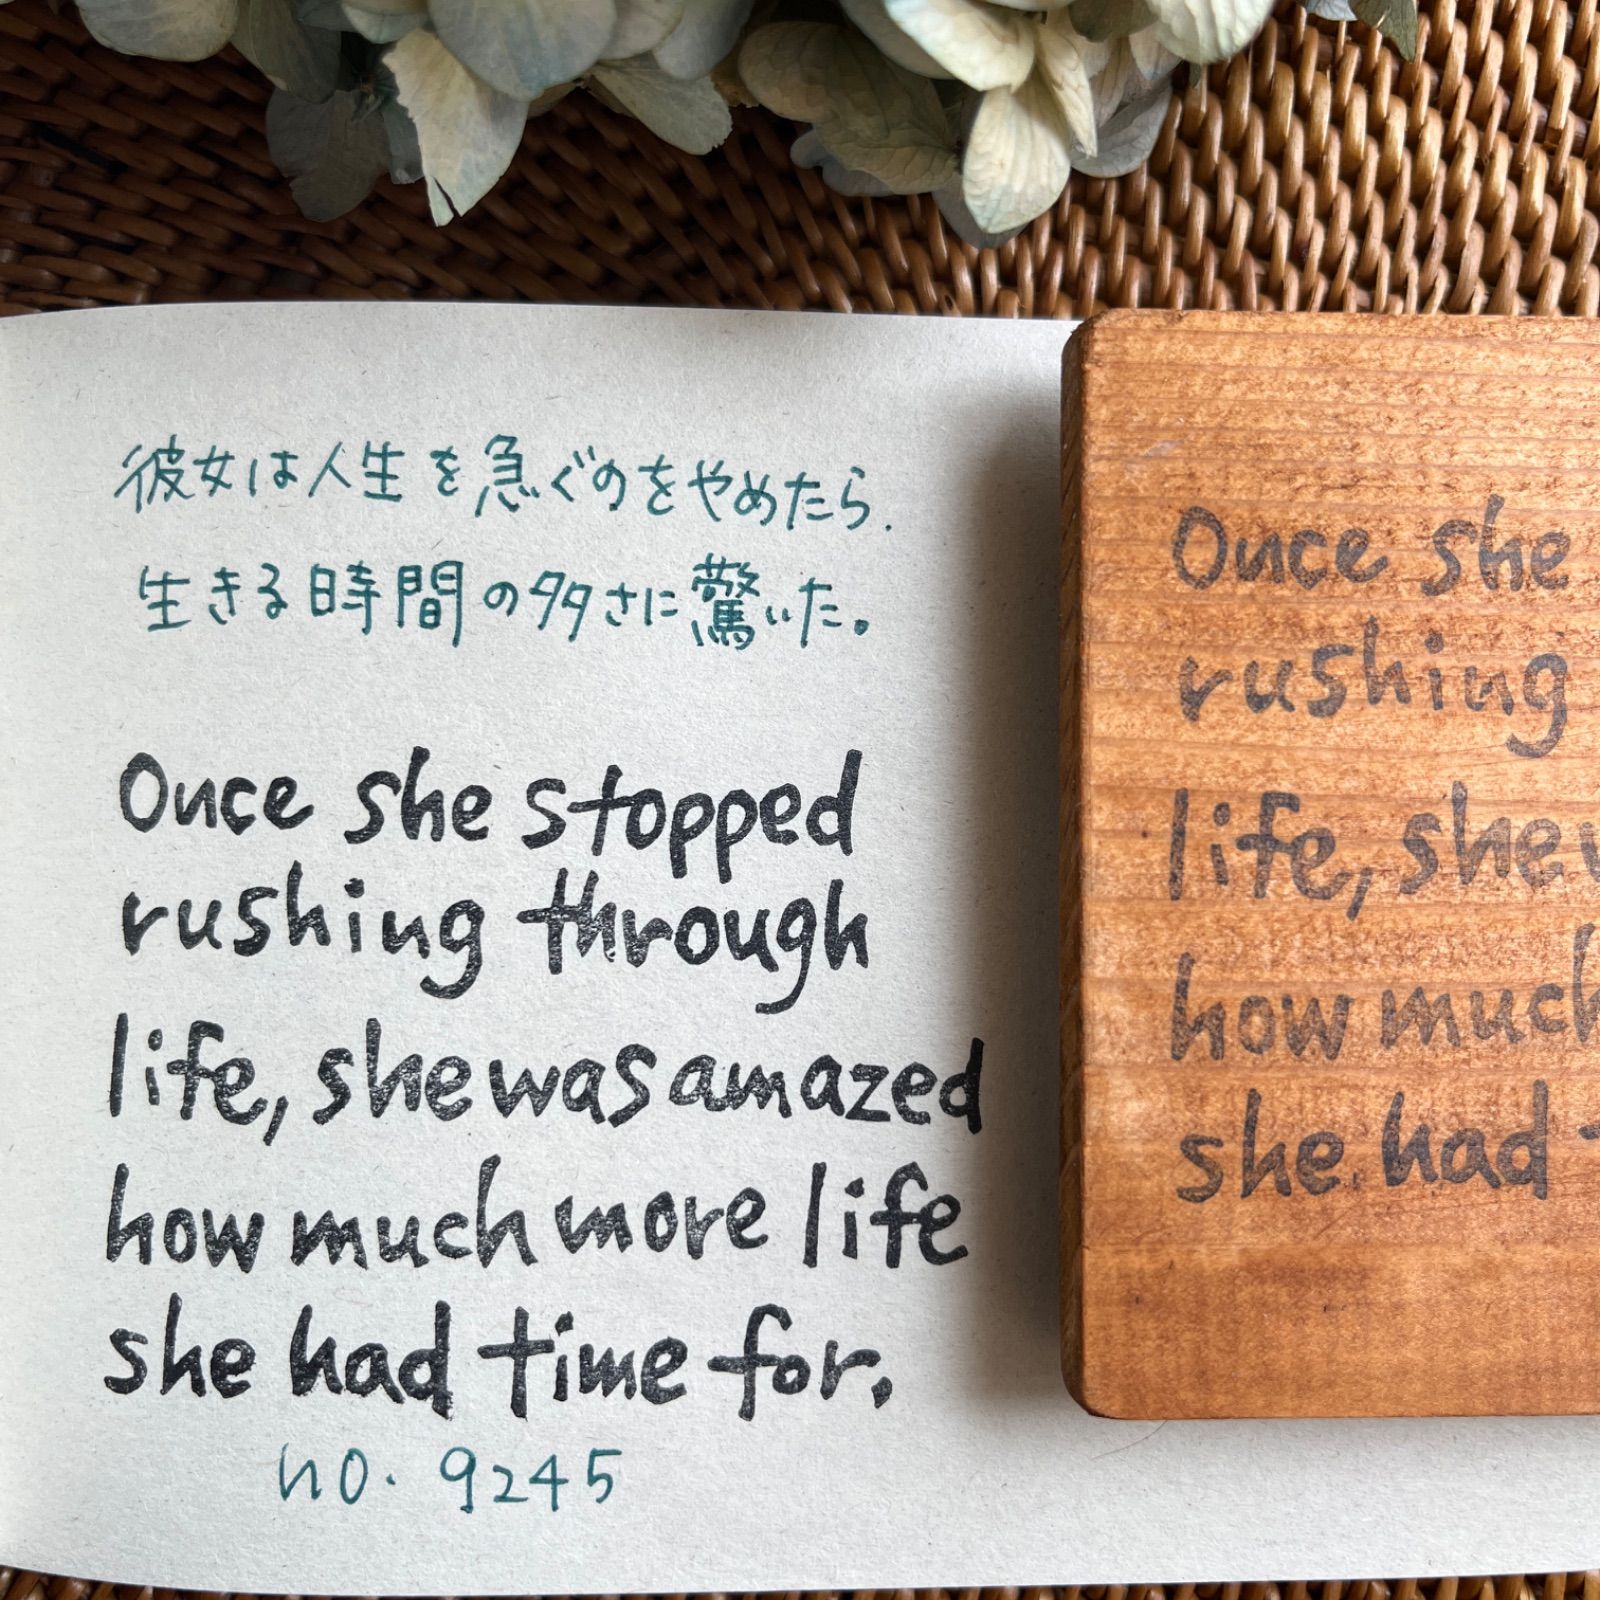 彼女は人生を急ぐのをやめたら.
生きる時間の多さに驚いた。
Once she stopped
rushing through
life, she was amazed
how much more life
she had time for.
no. 9245
Once she
rushing
life, she
how much
she had